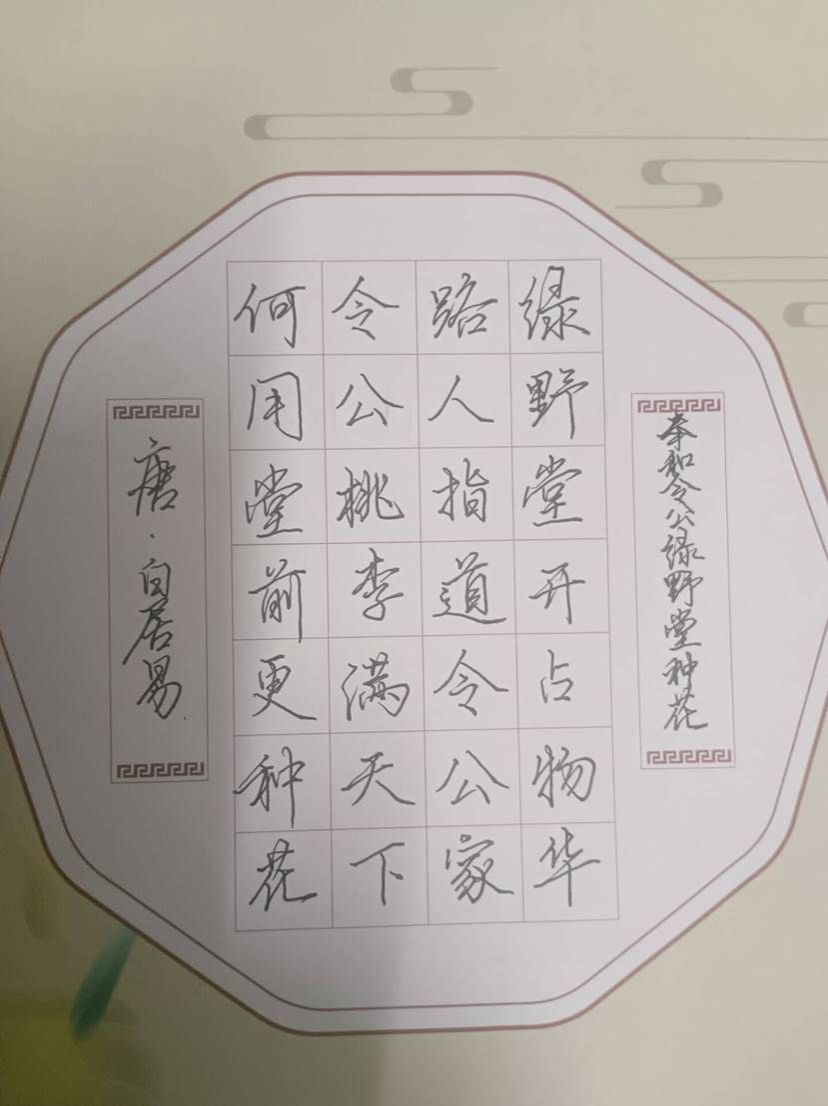 奉和令公绿野堂种花
绿野堂开占物华
路人指道令公家
令公桃李满天下
何用堂前更种花
唐·白居易